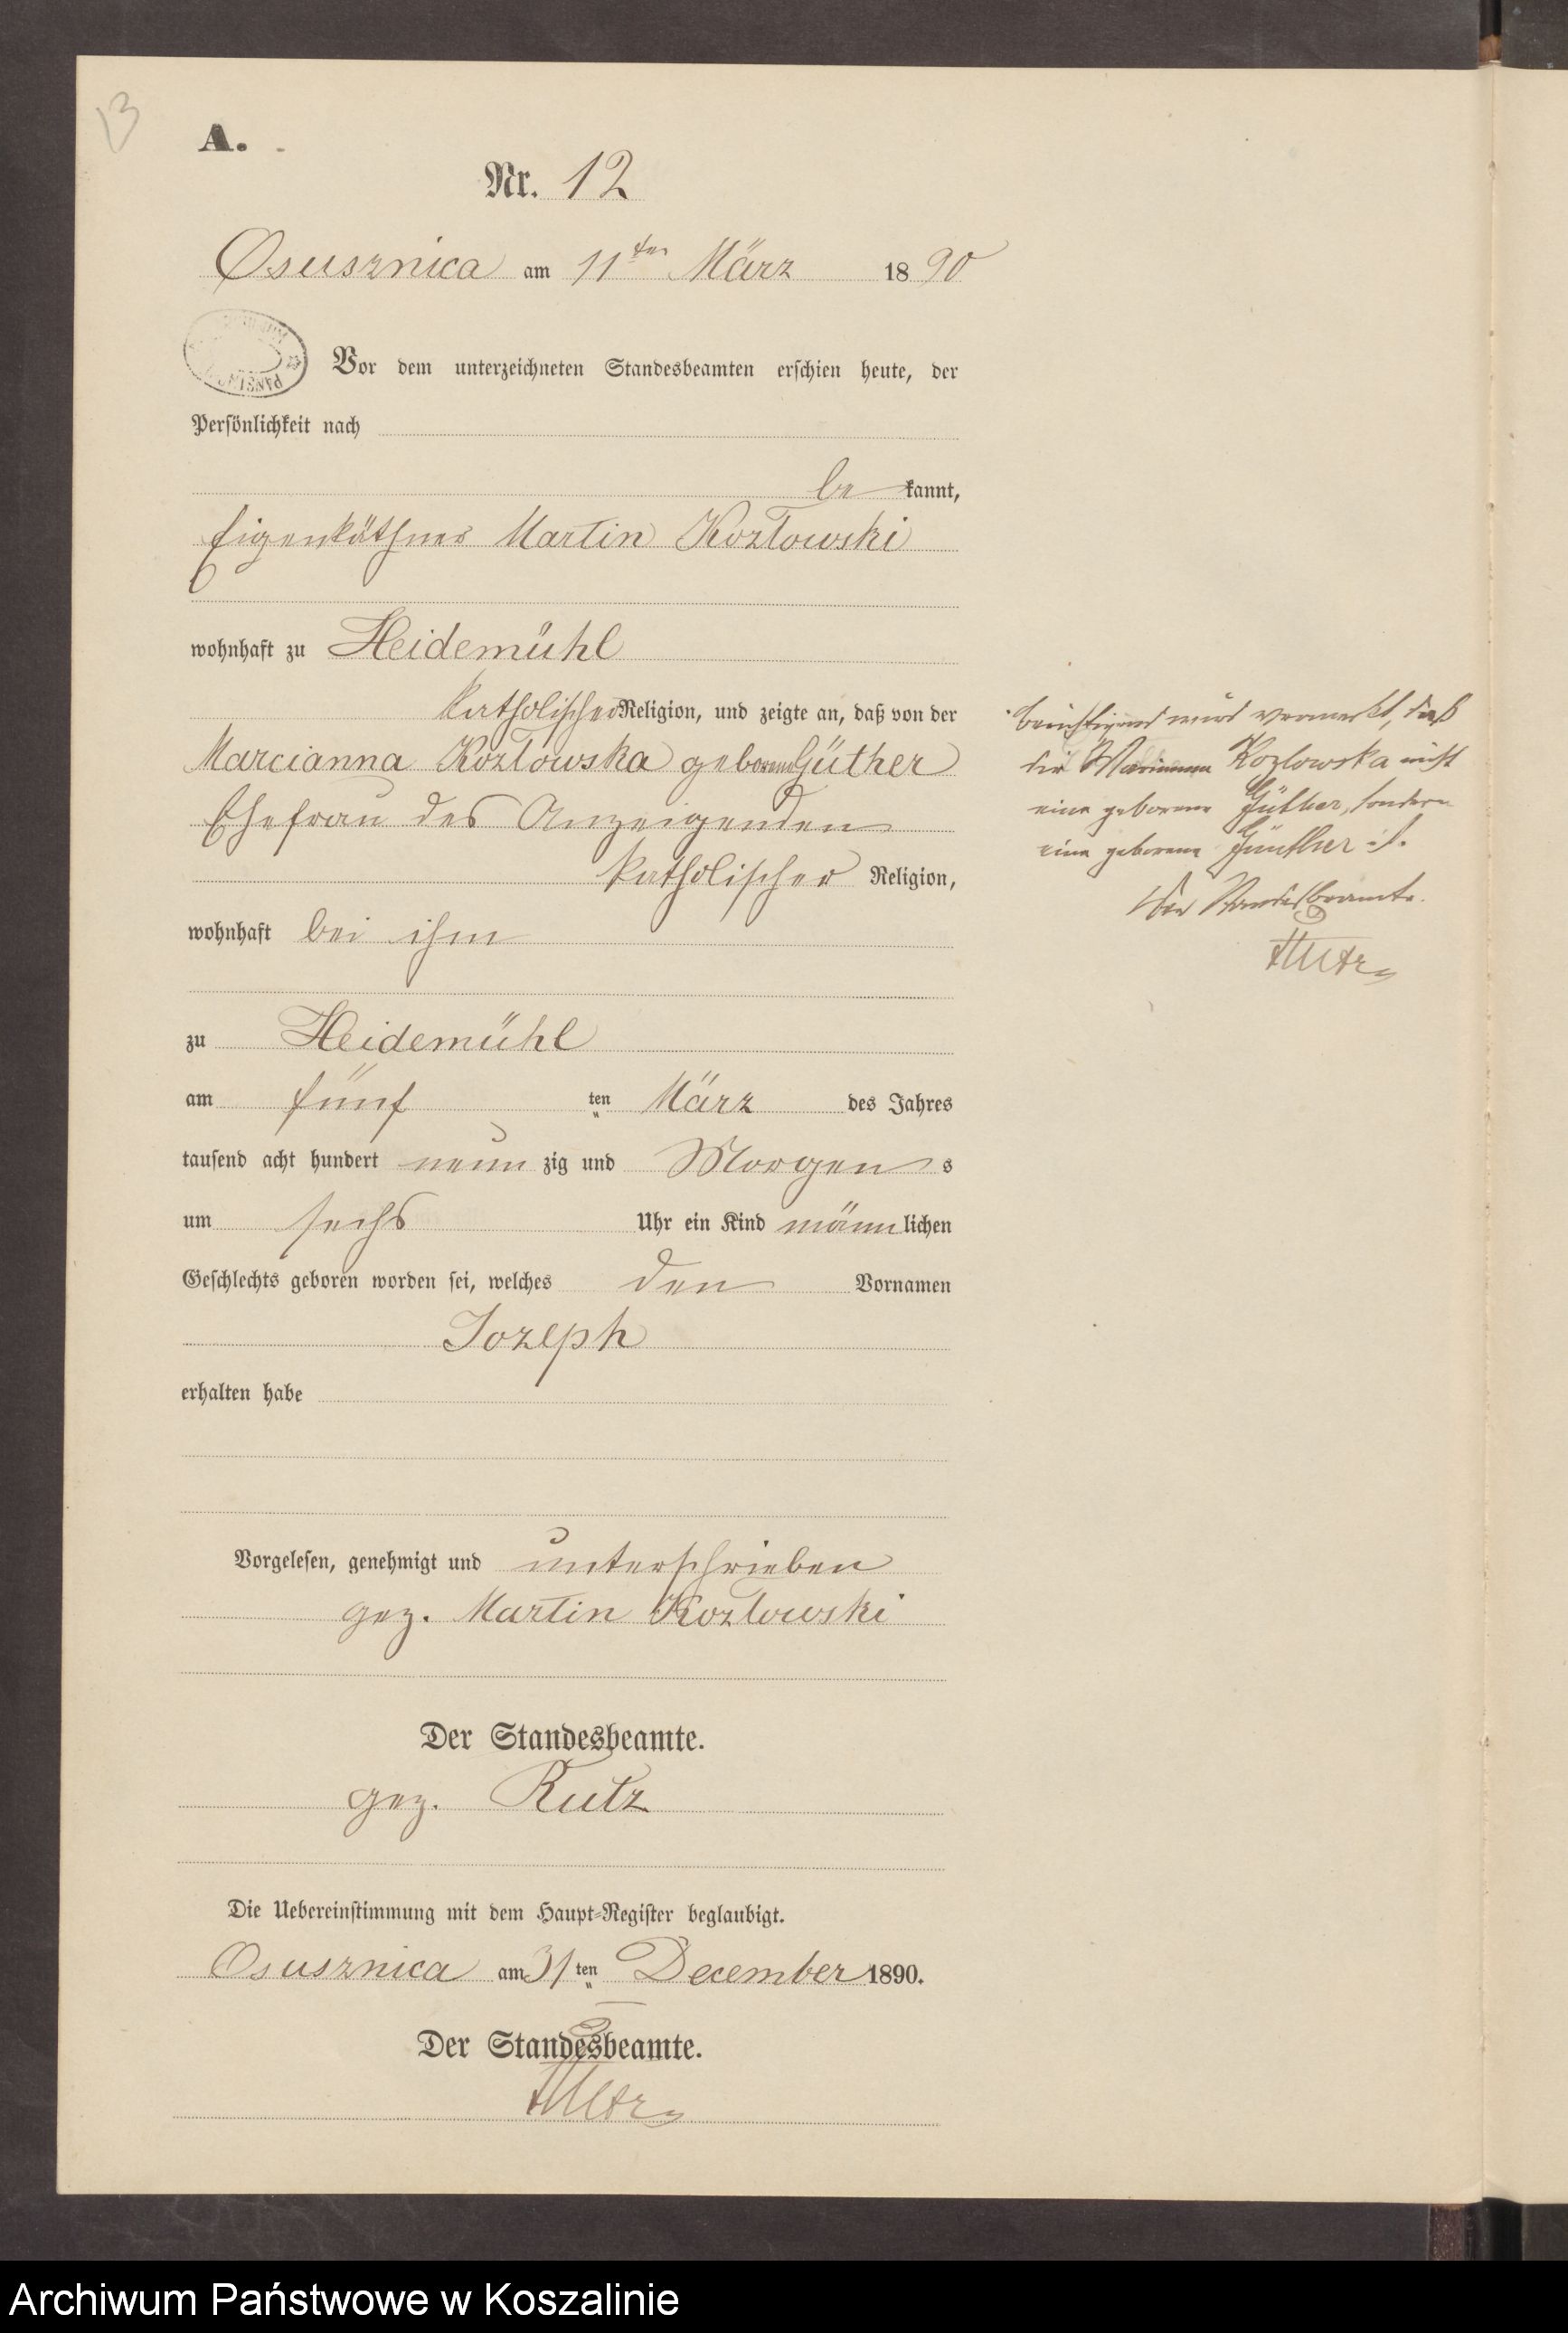 13
A.
Nr. 12
Osusznica am 11ten März 1890
Vor dem unterzeichneten Standesbeamten erschien heute, der
Persönlichkeit nach
be kannt,
Eigenkäthner Martin Kozłowski
wohnhaft zu Heidemühl
katholischer Religion, und zeigte an, daß von der
Marcianna Kozłowska geborene Güther
Ehefrau des Anzeigenden
katholischer Religion,
wohnhaft bei ihm
zu Heidemühl
am fünf ten März des Jahres
tausend acht hundert neun zig und Morgens
um sechs Uhr ein Kind männlichen
Geschlechts geboren worden sei, welches den Vornamen
Jozeph
erhalten habe
Vorgelesen, genehmigt und unterschrieben
gez. Martin Kozłowski
Der Standesbeamte.
gez. Kutz
Die Uebereinstimmung mit dem Haupt-Register beglaubigt.
Osusznica am 31ten December 1890.
Der Standesbeamte.
Kutz
Berichtigend wird vermerkt, daß
die Marianna Kozlowska nicht
eine geborene Güther, sondern
eine geborene Günther ist.
Der Standesbeamte.
Kutz
Archiwum Państwowe w Koszalinie